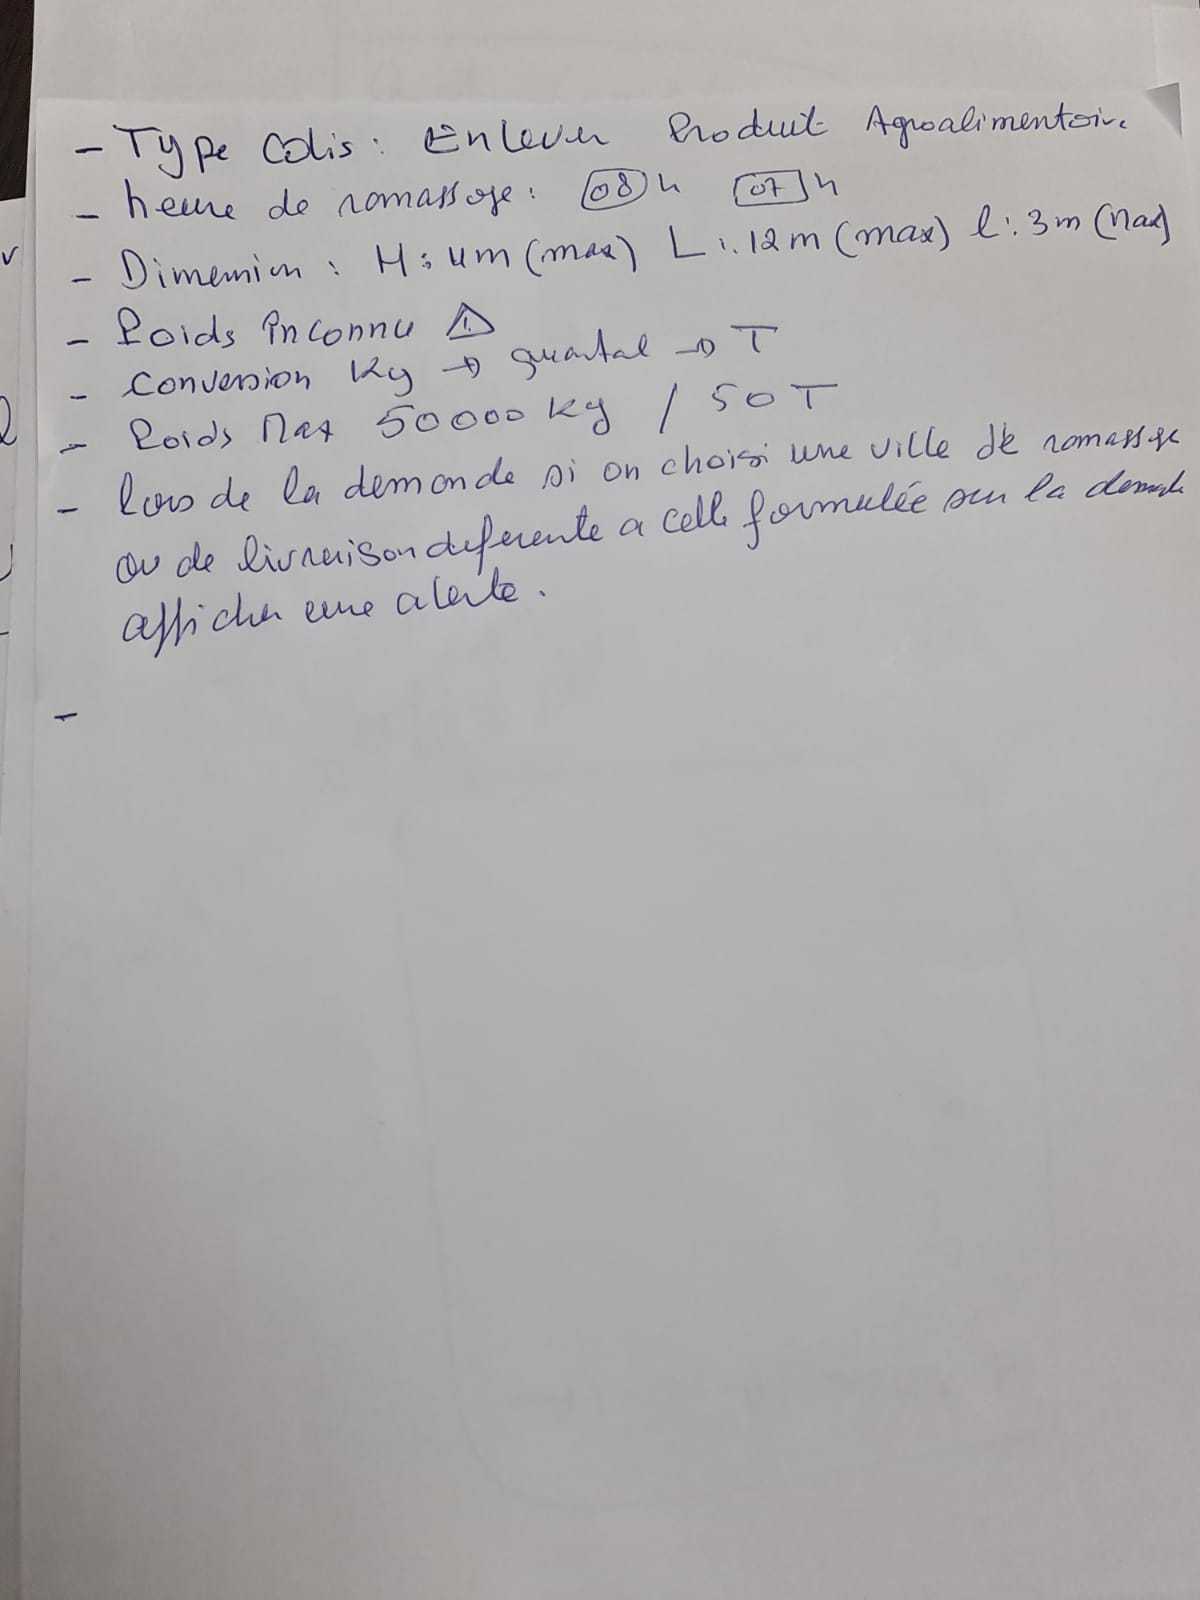 - Type Colis : Enlever Produit Agroalimentaire
- heure de ramassage : 08 h 07 h
- Dimension : H : 4m (max) L : 12m (max) l : 3m (Max)
- Poids inconnu ⚠
- Conversion Kg → quantal → T
- Poids Max 50000 Kg / 50 T
- lors de la demande si on choisi une ville de ramassage
ou de livraison deferente a celle formulée sur la demande
afficher une alerte.
-